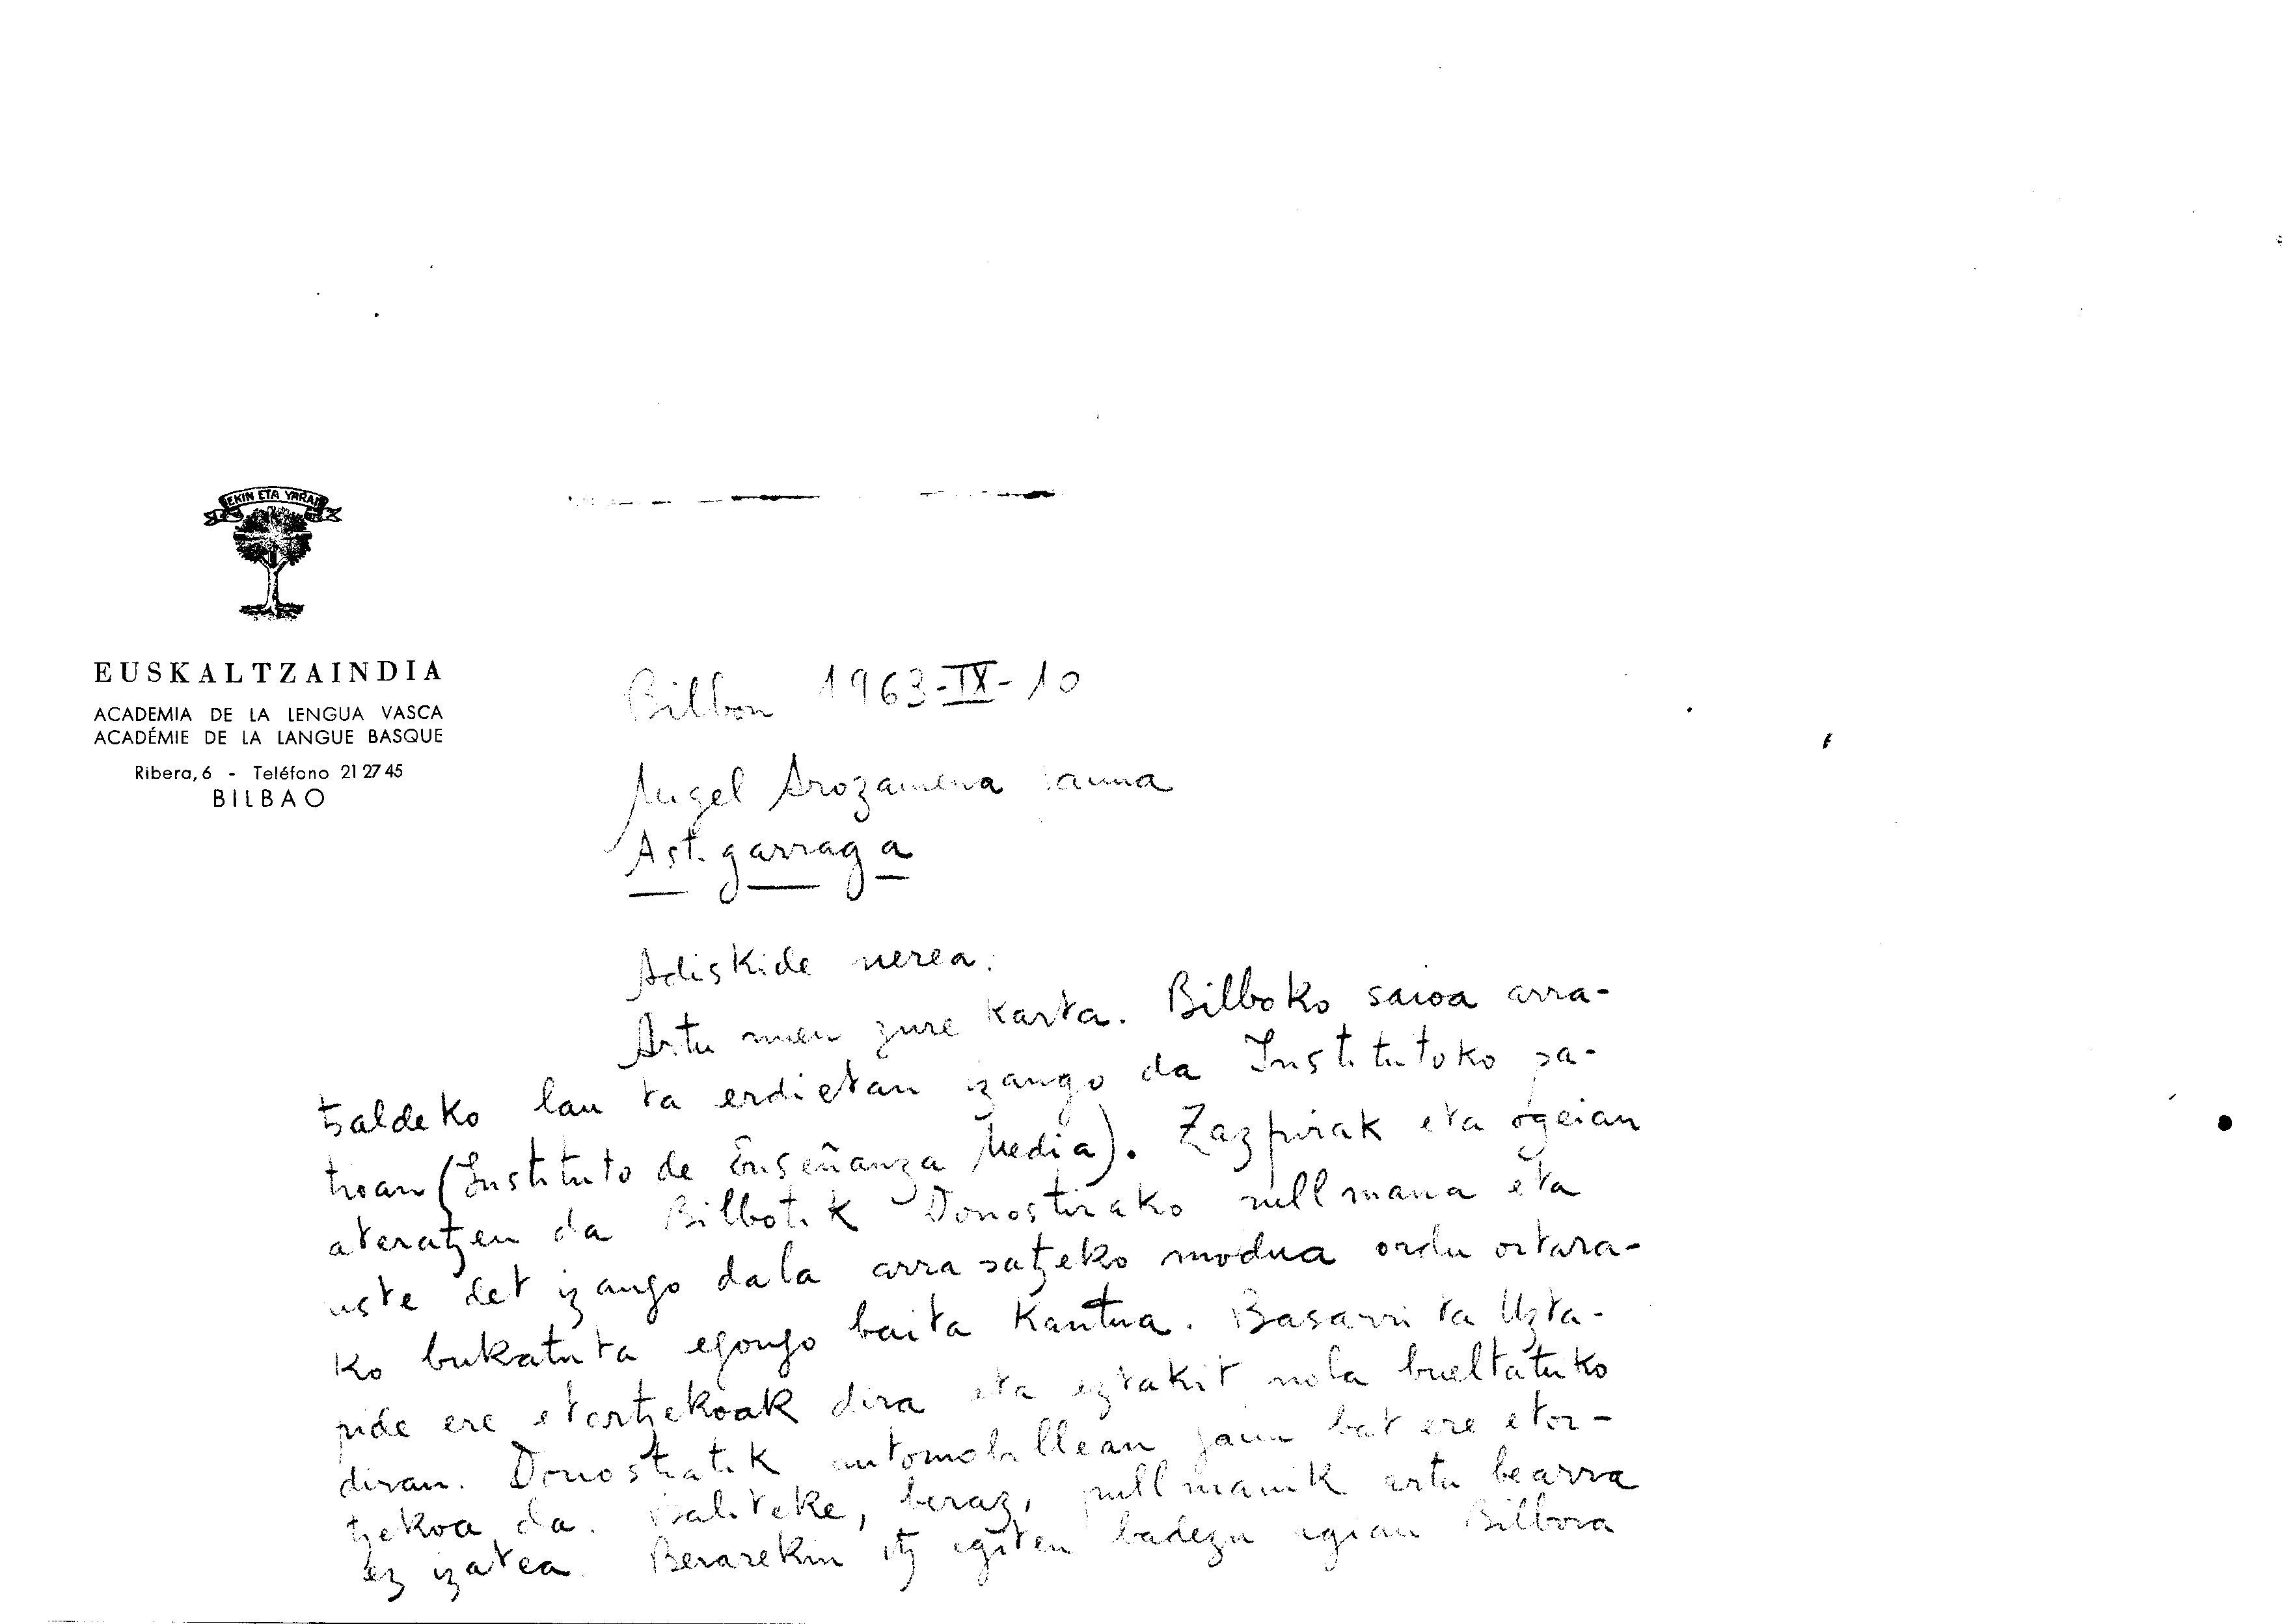 EKIN ETA YARRAI
EUSKALTZAINDIA
ACADEMIA DE LA LENGUA VASCA
ACADÉMIE DE LA LANGUE BASQUE
Ribera, 6 - Teléfono 21 27 45
BILBAO
Bilbon 1963-IX-10
Angel Arozamena jauna
Astigarraga
Adiskide nerea:
Artu nuen zure karta. Bilboko saioa arra-
tsaldeko lau ta erdietan izango da Institutoko pa-
tioan (Instituto de Enseñanza Media). Zazpirak eta ogeian
ateratzen da Bilbotik Donostirako pullmana eta
uste det izango dala arrapatzeko modua ordu ortara-
ko bukatuta egongo baita kantua. Basarri ta Uzta-
pide ere etortzekoak dira eta eztakit nola bueltatuko
diran. Donostiatik automobillean jaun bat ere etor-
tzekoa da. Baliteke, beraz, pullmanik artu bearra
ez izatea. Berarekin itz egiten badezu agian Bilbora